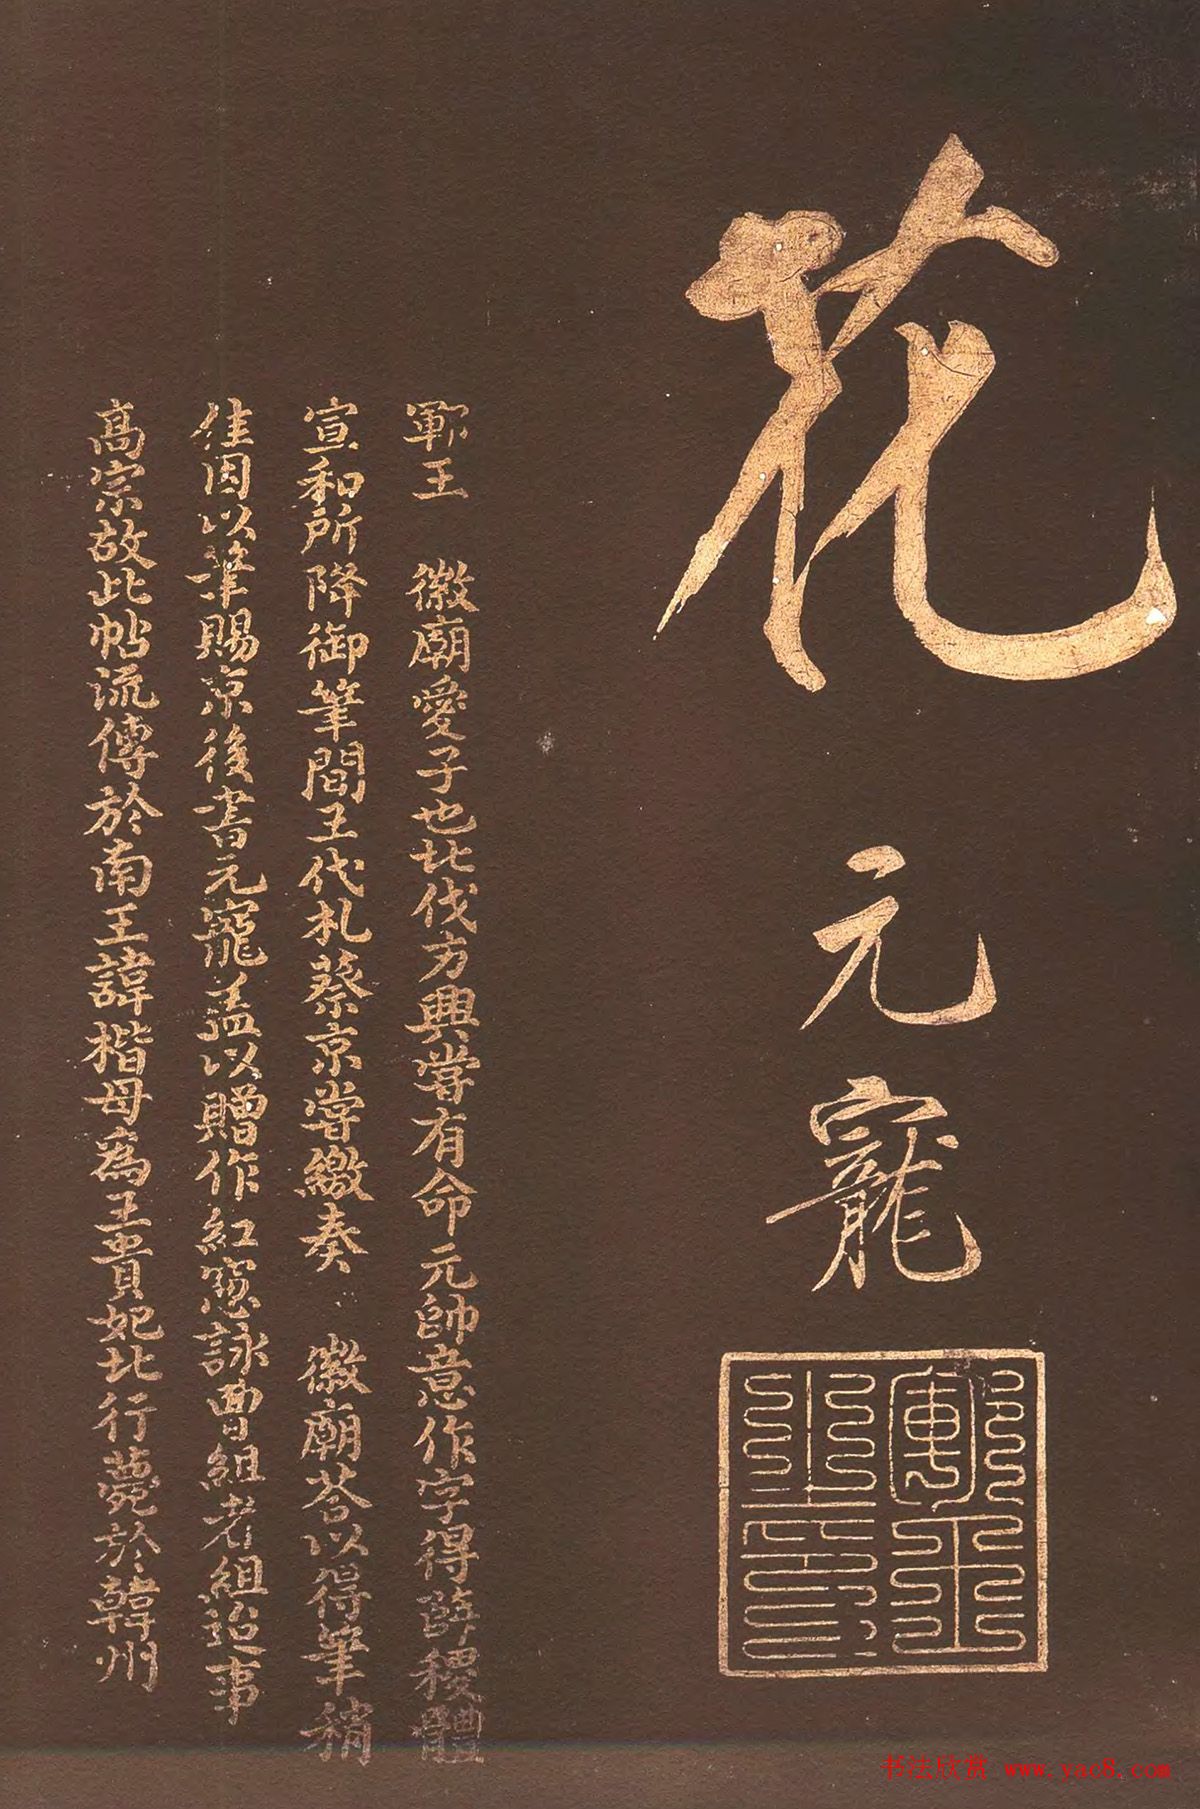 花
元寵
鄆王之印
鄆王 徽廟愛子也北伐方興嘗有命元帥意作字得薛稷體
宣和所降御筆間王代札蔡京嘗繳奏 徽廟荅以得筆稍
佳因以筆賜京後書元寵盖以贈作紅窓詠曹組者組迨事
高宗故此帖流傳於南王諱楷母為王貴妃北行薨於韓州
书法欣赏 www.yac8.com